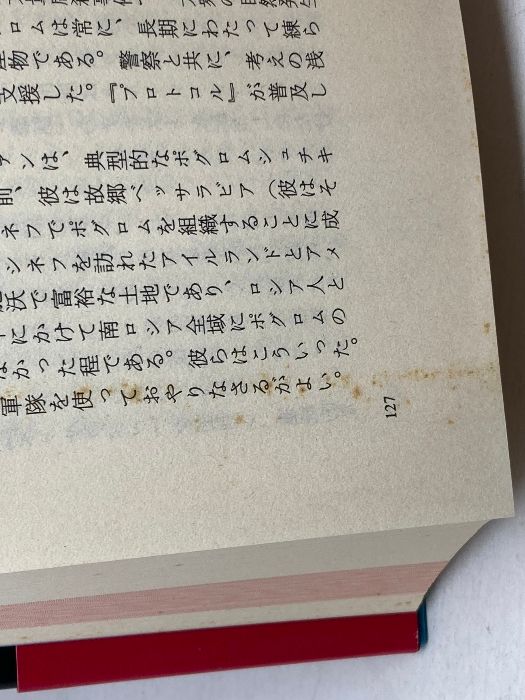 ロムは常に、長期にわたって練ら
物である。警察と共に、考えの浅
支援した。『プロトコル』が普及し
ンは、典型的なポグロムシュチキ
前、彼は故郷ベッサラビア（彼はそ
ネフでポグロムを組織することに成
シネフを訪れたアイルランドとアメ
沃で富裕な土地であり、ロシア人と
にかけて南ロシア全域にポグロムの
なかった程である。彼らはこういった。
軍隊を使っておやりなさるがよい。
127